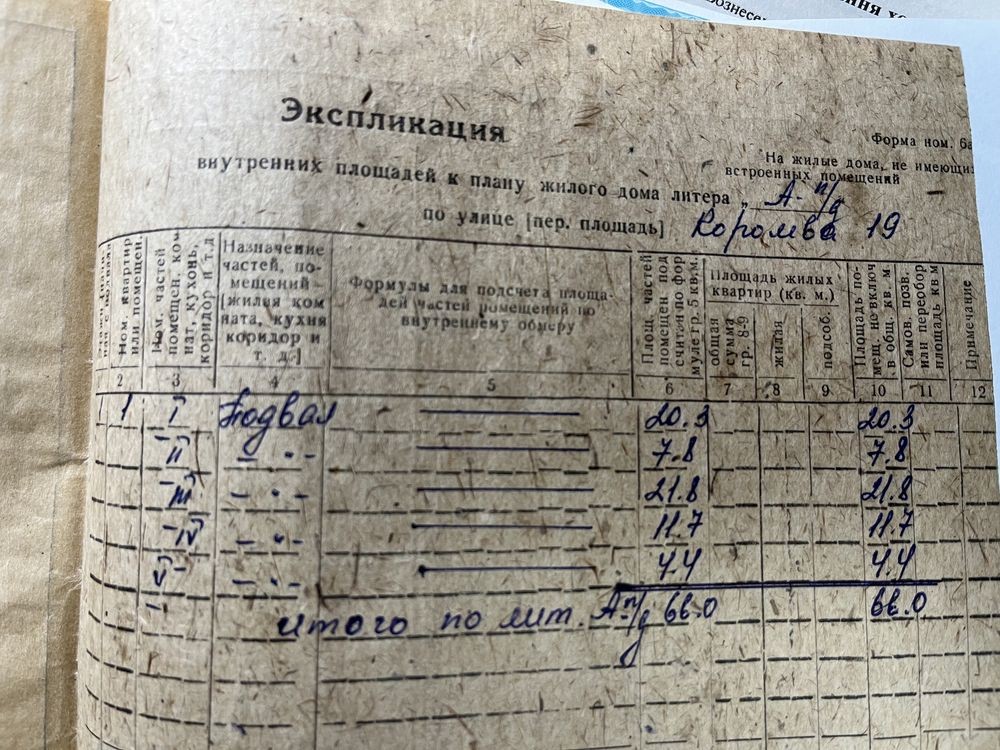 ения хо
Вознесе
Экспликация
Форма ном. 6а
На жилые дома, не имеющи
встроенных помещений
внутренних площадей к плану жилого дома литера „ А- п/д
по улице [пер. площадь] Королва 19
Ном. квартир или помещен.
Ном. частей помещен. ком нат, кухонь, коридор и т.д
Назначение частей, по- мещений - [жилая ком ната, кухня коридор и т. д.]
Формулы для подсчета площа- дей частей помещений по внутреннему обмеру
Площ. частей помещен под считан по фор муле гр. 5 кв.м.
Площадь жилых квартир (кв. м.)
общая сумма гр. 8-9
жилая
подсоб.
Площадь по- мещ. не включ в общ. кв. м
Самов. возв. или переобор площадь кв м
Примечание
2 3 4 5 6 7 8 9 10 11 12
1 I Подвал 20.3 20.3
II - " - 7.8 7.8
III - " - 21.8 21.8
IV - " - 11.7 11.7
V - " - 4.4 4.4
итого по лит. А-п/д 66.0 66.0